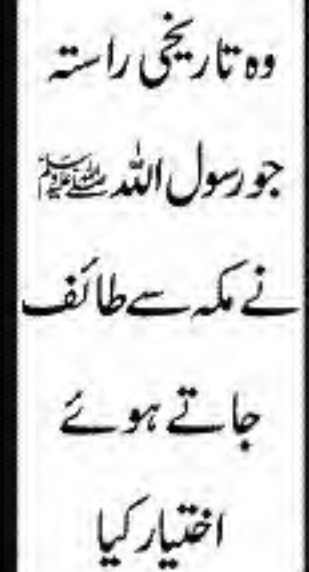 وہ تاریخی راستہ
جو رسول اللہ ﷺ
نے مکہ سے طائف
جاتے ہوئے
اختیار کیا